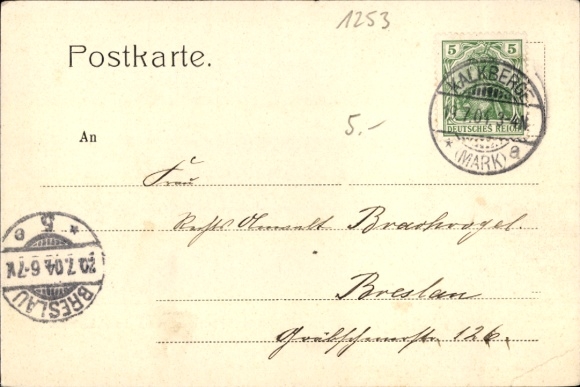 1253
Postkarte.
5 5
DEUTSCHES REICH
KALKBERGE
19.7.04. 3-4N
* (MARK) a
5.-
An
Frau
Rechts Anwalt Brachvogel.
Breslau
Grübschenerstr. 126.
BRESLAU
20.7.04.6-7V
* 5 e